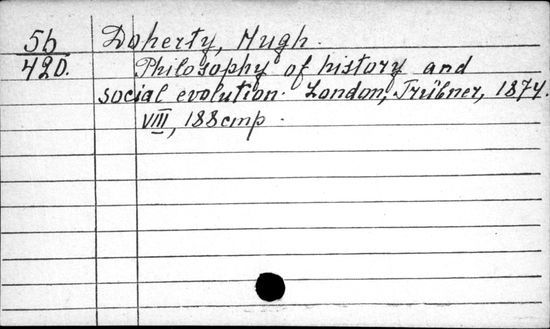 56 Doherty, Hugh.
420. Philosophy of history and
social evolution. London, Trübner, 1874.
VIII, 188 cmp.